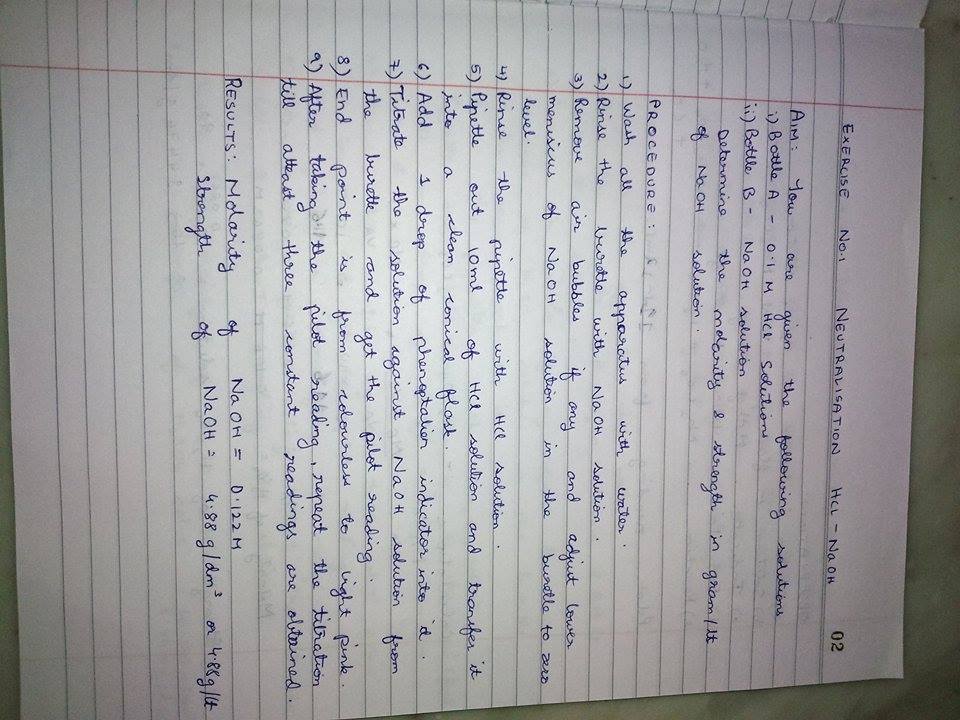 EXERCISE No.1 NEUTRALISATION HCl - NaOH 02
AIM: You are given the following solutions
i) Bottle A - 0.1 M HCl Solutions
ii) Bottle B - NaOH solution
Determine the molarity & strength in gram/lt
of NaOH solution.
PROCEDURE:
1) Wash all the apparatus with water.
2) Rinse the burette with NaOH solution.
3) Remove air bubbles if any and adjust lower
meniscus of NaOH solution in the burette to zero
level.
4) Rinse the pipette with HCl solution.
5) Pipette out 10ml of HCl solution and transfer it
into a clean conical flask.
6) Add 1 drop of phenoptalien indicator into it.
7) Titrate the solution against NaOH solution from
the burette and get the pilot reading.
8) End point is from colourless to light pink.
9) After taking the pilot reading, repeat the titration
till atleast three constant readings are obtained.
RESULTS: Molarity of NaOH = 0.122M
Strength of NaOH = 4.88 g/dm³ or 4.88g/lt